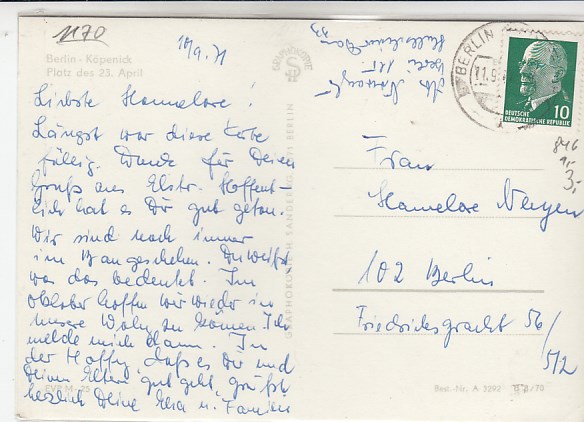 1170
10/9.71
Berlin - Köpenick
Platz des 23. April
Liebste Hannelore!
Längst war diese Karte
fällig. Danke für Deinen
Gruß aus Elstr. Hoffent-
lich hat es Dir gut getan.
Wir sind noch immer
im Baugeschehen. Du weißt
was das bedeutet. Im
Oktober hoffen wir wieder in
unsere Wohng zu können. Ich
melde mich dann. In
der Hoffg, daß es Dir und
Deinen Eltern gut geht, grüßt
herzlich Deine u. Familie
EVP M -,25
GRAPHOKUNST H. SANDER KG, 1071 BERLIN
BERLIN
11.9.
DEUTSCHE
DEMOKRATISCHE REPUBLIK
10
846
3,-
Frau
Hannelore
102 Berlin
Friedrichsgracht 56/
5/2
Best.-Nr. A 3292